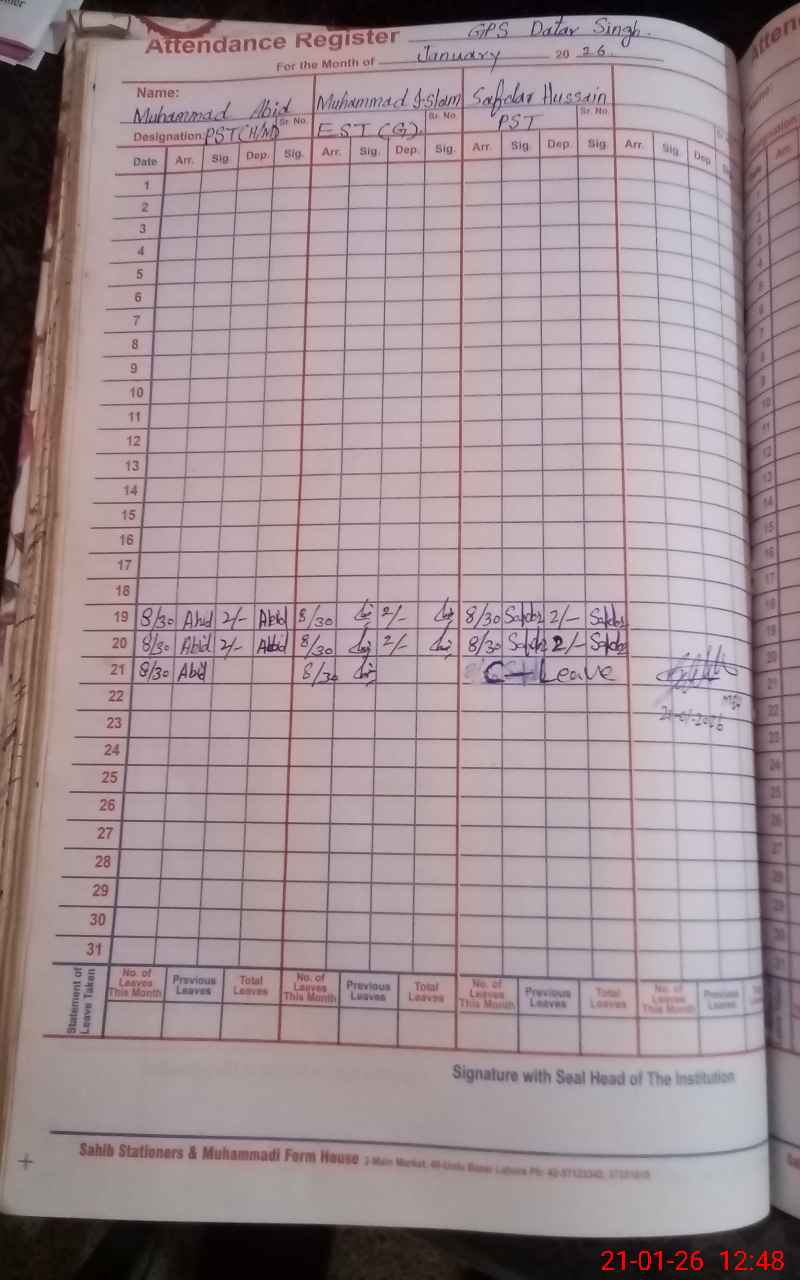 Attendance Register GPS Datar Singh.
For the Month of January 20 26.
Name:
Muhammad Abid Muhammad Islam Safdar Hussain
Sr. No. Sr. No. Sr. No.
Designation: PST(H/M) EST (G). PST
Date Arr. Sig. Dep. Sig. Arr. Sig. Dep. Sig. Arr. Sig. Dep. Sig. Arr. Sig. Dep
1
2
3
4
5
6
7
8
9
10
11
12
13
14
15
16
17
18
19 8/30 Abid 2/- Abid 8/30 2/- 8/30 Safdar 2/- Safdar
20 8/30 Abid 2/- Abid 8/30 2/- 8/30 Safdar 2/- Safdar
21 8/30 Abid 8/30 C-Leave
22
21-01-2026
23
24
25
26
27
28
29
30
31
Statement of Leave Taken
No. of Leaves This Month Previous Leaves Total Leaves No. of Leaves This Month Previous Leaves Total Leaves No. of Leaves This Month Previous Leaves Total Leaves No. of Leaves This Month Previous Leaves
Signature with Seal Head of The Institution
Sahib Stationers & Muhammadi Form House
21-01-26 12:48